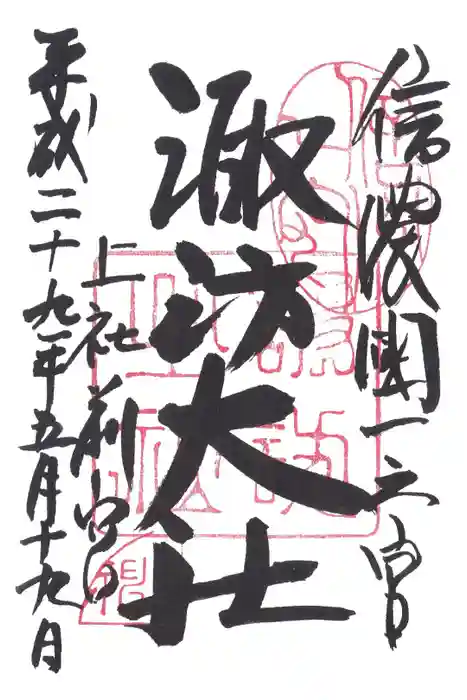 信濃國一之宮
諏訪大社
上社前宮
平成二十九年五月十九日